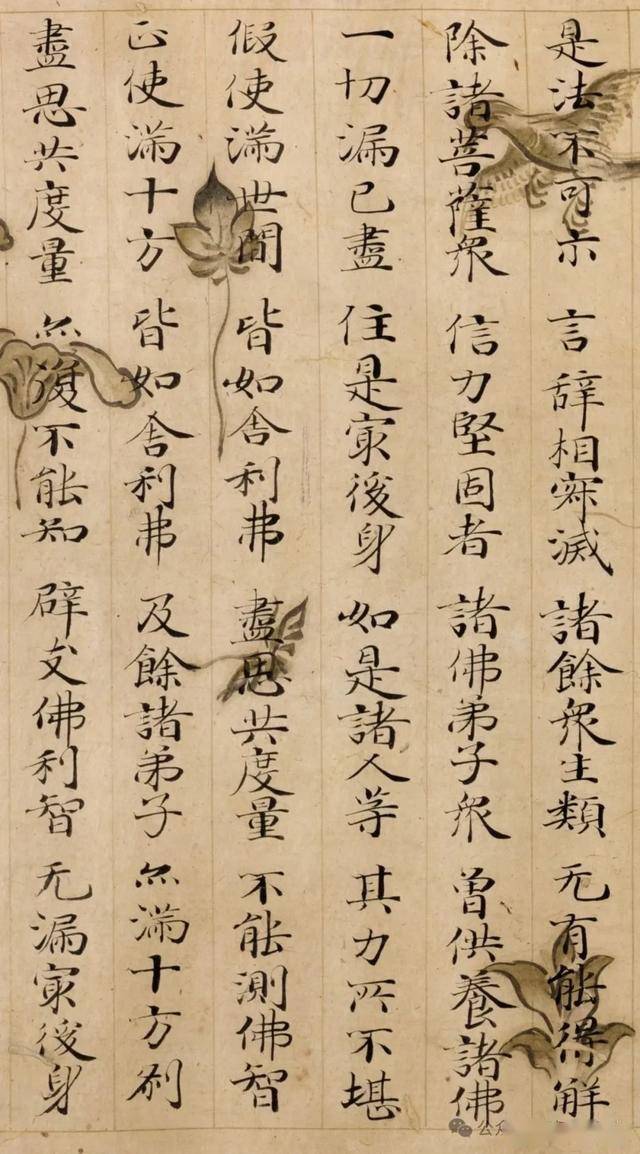 是法不可示 言辞相寂滅 諸餘衆生類 无有能得解
除諸菩薩衆 信力堅固者 諸佛弟子衆 曾供養諸佛
一切漏已盡 住是冣後身 如是諸人等 其力所不堪
假使滿世間 皆如舍利弗 盡思共度量 不能測佛智
正使滿十方 皆如舍利弗 及餘諸弟子 亦滿十方刹
盡思共度量 亦復不能知 辟支佛利智 无漏冣後身